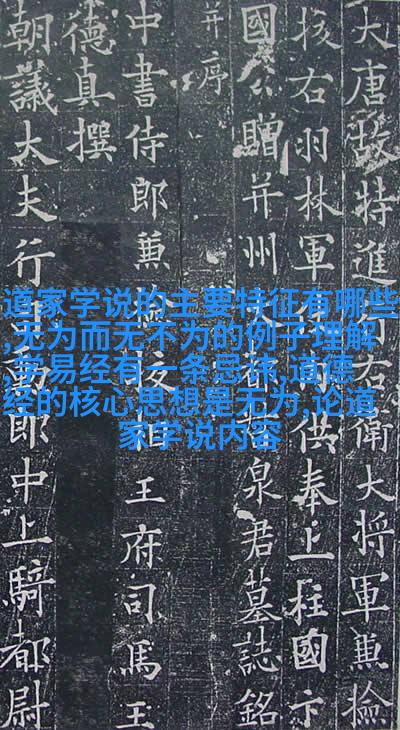 大唐故特進行右衛大將軍兼撿
校右羽林軍仗內供奉上柱國卞
國公贈并州大都督泉君墓誌銘
并序
中書侍郎兼檢校相王府司馬王
德真撰
朝議大夫行司勳郎中上騎都尉
道家学说的主要特征有哪些
,无为而无不为的例子理解
,学易经有一条忌讳,道德
经的核心思想是无为,论道
家学说内容